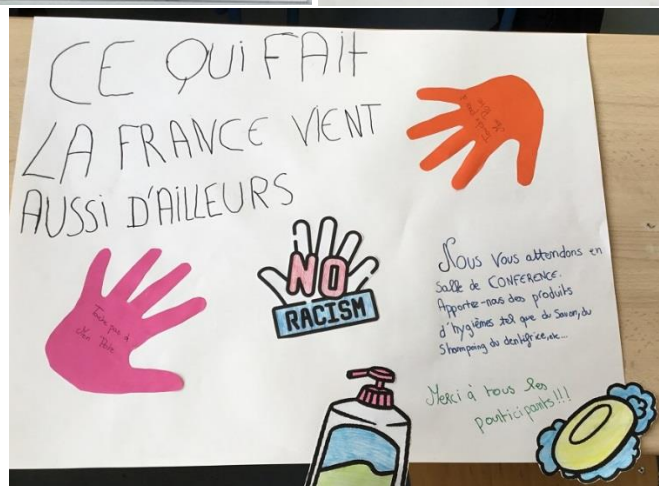 CE QUI FAIT
LA FRANCE VIENT
AUSSI D'AILLEURS
Touche pas à
Mon Pote
Touche pas à
Mon Pote
NO
RACISM
Nous Vous attendons en
Salle de CONFERENCE.
Apportez-nous des produits
d'hygiènes tel que du Savon, du
Shampoing du dentifrice, etc...
Merci à tous les
participants!!!